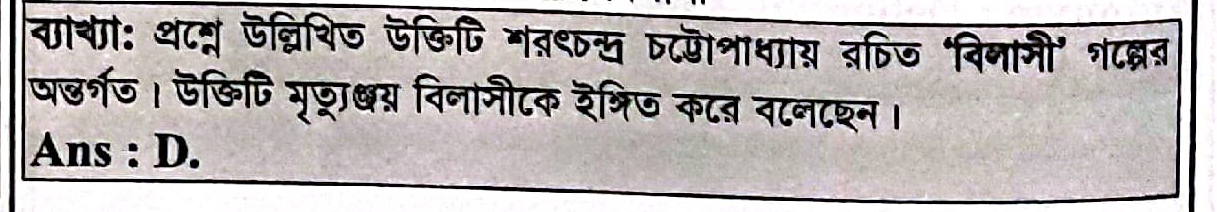 ব্যাখ্যা: প্রশ্নে উল্লিখিত উক্তিটি শরৎচন্দ্র চট্টোপাধ্যায় রচিত ‘বিলাসী’ গল্পের
অন্তর্গত। উক্তিটি মৃত্যুঞ্জয় বিলাসীকে ইঙ্গিত করে বলেছেন।
Ans : D.